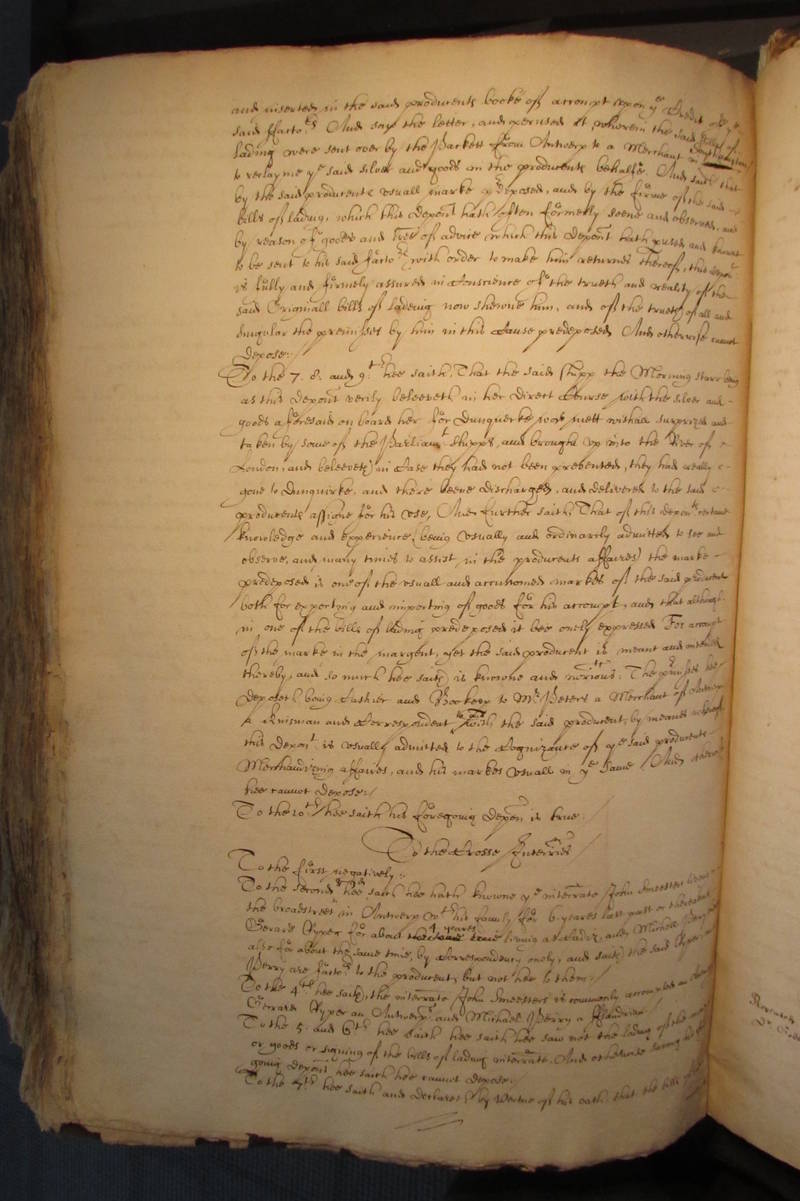 and inserted in the said producents booke of accompt upon ye Credit of ye
said ffactors And saw the letter, and perused it wherein the said bills of
lading were sent over by the Packett from Antwerp to a Merchant in
to reclayme ye said silver and goods on the producents behalfe And saith that
by the said producents usuall marke predeposed, and by the forme of the said
bills of lading, which this deponent hath often formerly seene and observed, and
by reason of ye goods and lres of advice which this deponent hath
to be sent to his said factors with order to make him returnes thereof, this deponent
is fully and firmely assured in Conscience of the trueth and reality of the
said Originall bills of ladeing now showne him, and of the trueth of all and
singular the premisses by him in this Cause predeposed And otherwise cannot
depose./
To the 7. 8. and 9th hee saith, That the said shipp the Morning starr being
as this deponent verily beleeveth in her direct Course with the silver and
goods aforesaid on board her for Dunquerke was mett withall surprized and
taken by some of the Parliamt shipps, and brought up into the River of
London, and beleeveth in Case they had not been prevented, they had really
gone to Dunquirke, and there beene discharged, and delivered to the said
producents assigne for his use, And further saith That of this deponts certaine
knowledge and experience (being usually and ordinarily admitted to see and
observe, and many times to assist in the producents affaires) the marke
predeposed is one of the usuall and accustomed markes of the said producent
both for exporting and importing of goods for his accompt, and that although
in one of the bills of lading predeposed it bee onely expressed For accompt
of the marke in the margent, yet the said producent is meant and intended
thereby, and so much hee saith is knowne and notorious: The premisses hee
deposeth being Cashier and Bookeeper to Mr Peters a Merchant of Antwerp
a kinsman and Correspondent with the said producent, by meanes whereof
this deponent is usually admitted to the Cognizance of ye said producents
Merchandizing affaires, and his markes usuall in ye same And otherwise
hee cannot depose./
To the 10th hee saith his foregoing deposn is true./
To the Crosse Interries
To the first negatively./
To the second hee saith hee hath knowne ye interrate John Smeesters living in
the broadstreet in Antwerp wth his family for 6 yeares last past or thereabouts
Gerard Ryper for about 4 yeares living at Cadiz, and Michael Perry
also for about the same time, by Correspondency onely, and saith the said Ryper and
Perry are factors to the producent, but not hee to them./
To the 4th hee saith, the interrate John Smeesters is commonly accounted an
Gerrard Ryper an Antwerper and Michael Perry a fflandrian/
To the 5 and 6th hee saith hee saith hee saw not the lading of the
or goods or signing of the bills of lading interrate. And otherwise saving his
going deposn hee saith hee cannot depose./
To the 7th hee saith and declares by vertue of his oath, that the bills of